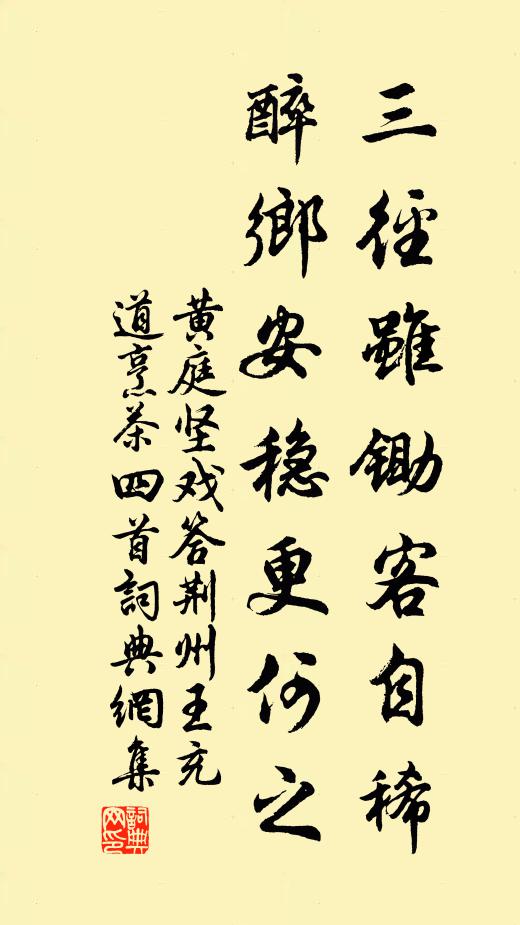 三徑雖鋤客自稀
醉鄉安穏更何之
黄庭坚戏答荆州王充
道烹茶四首詞典網集
詞典
网印